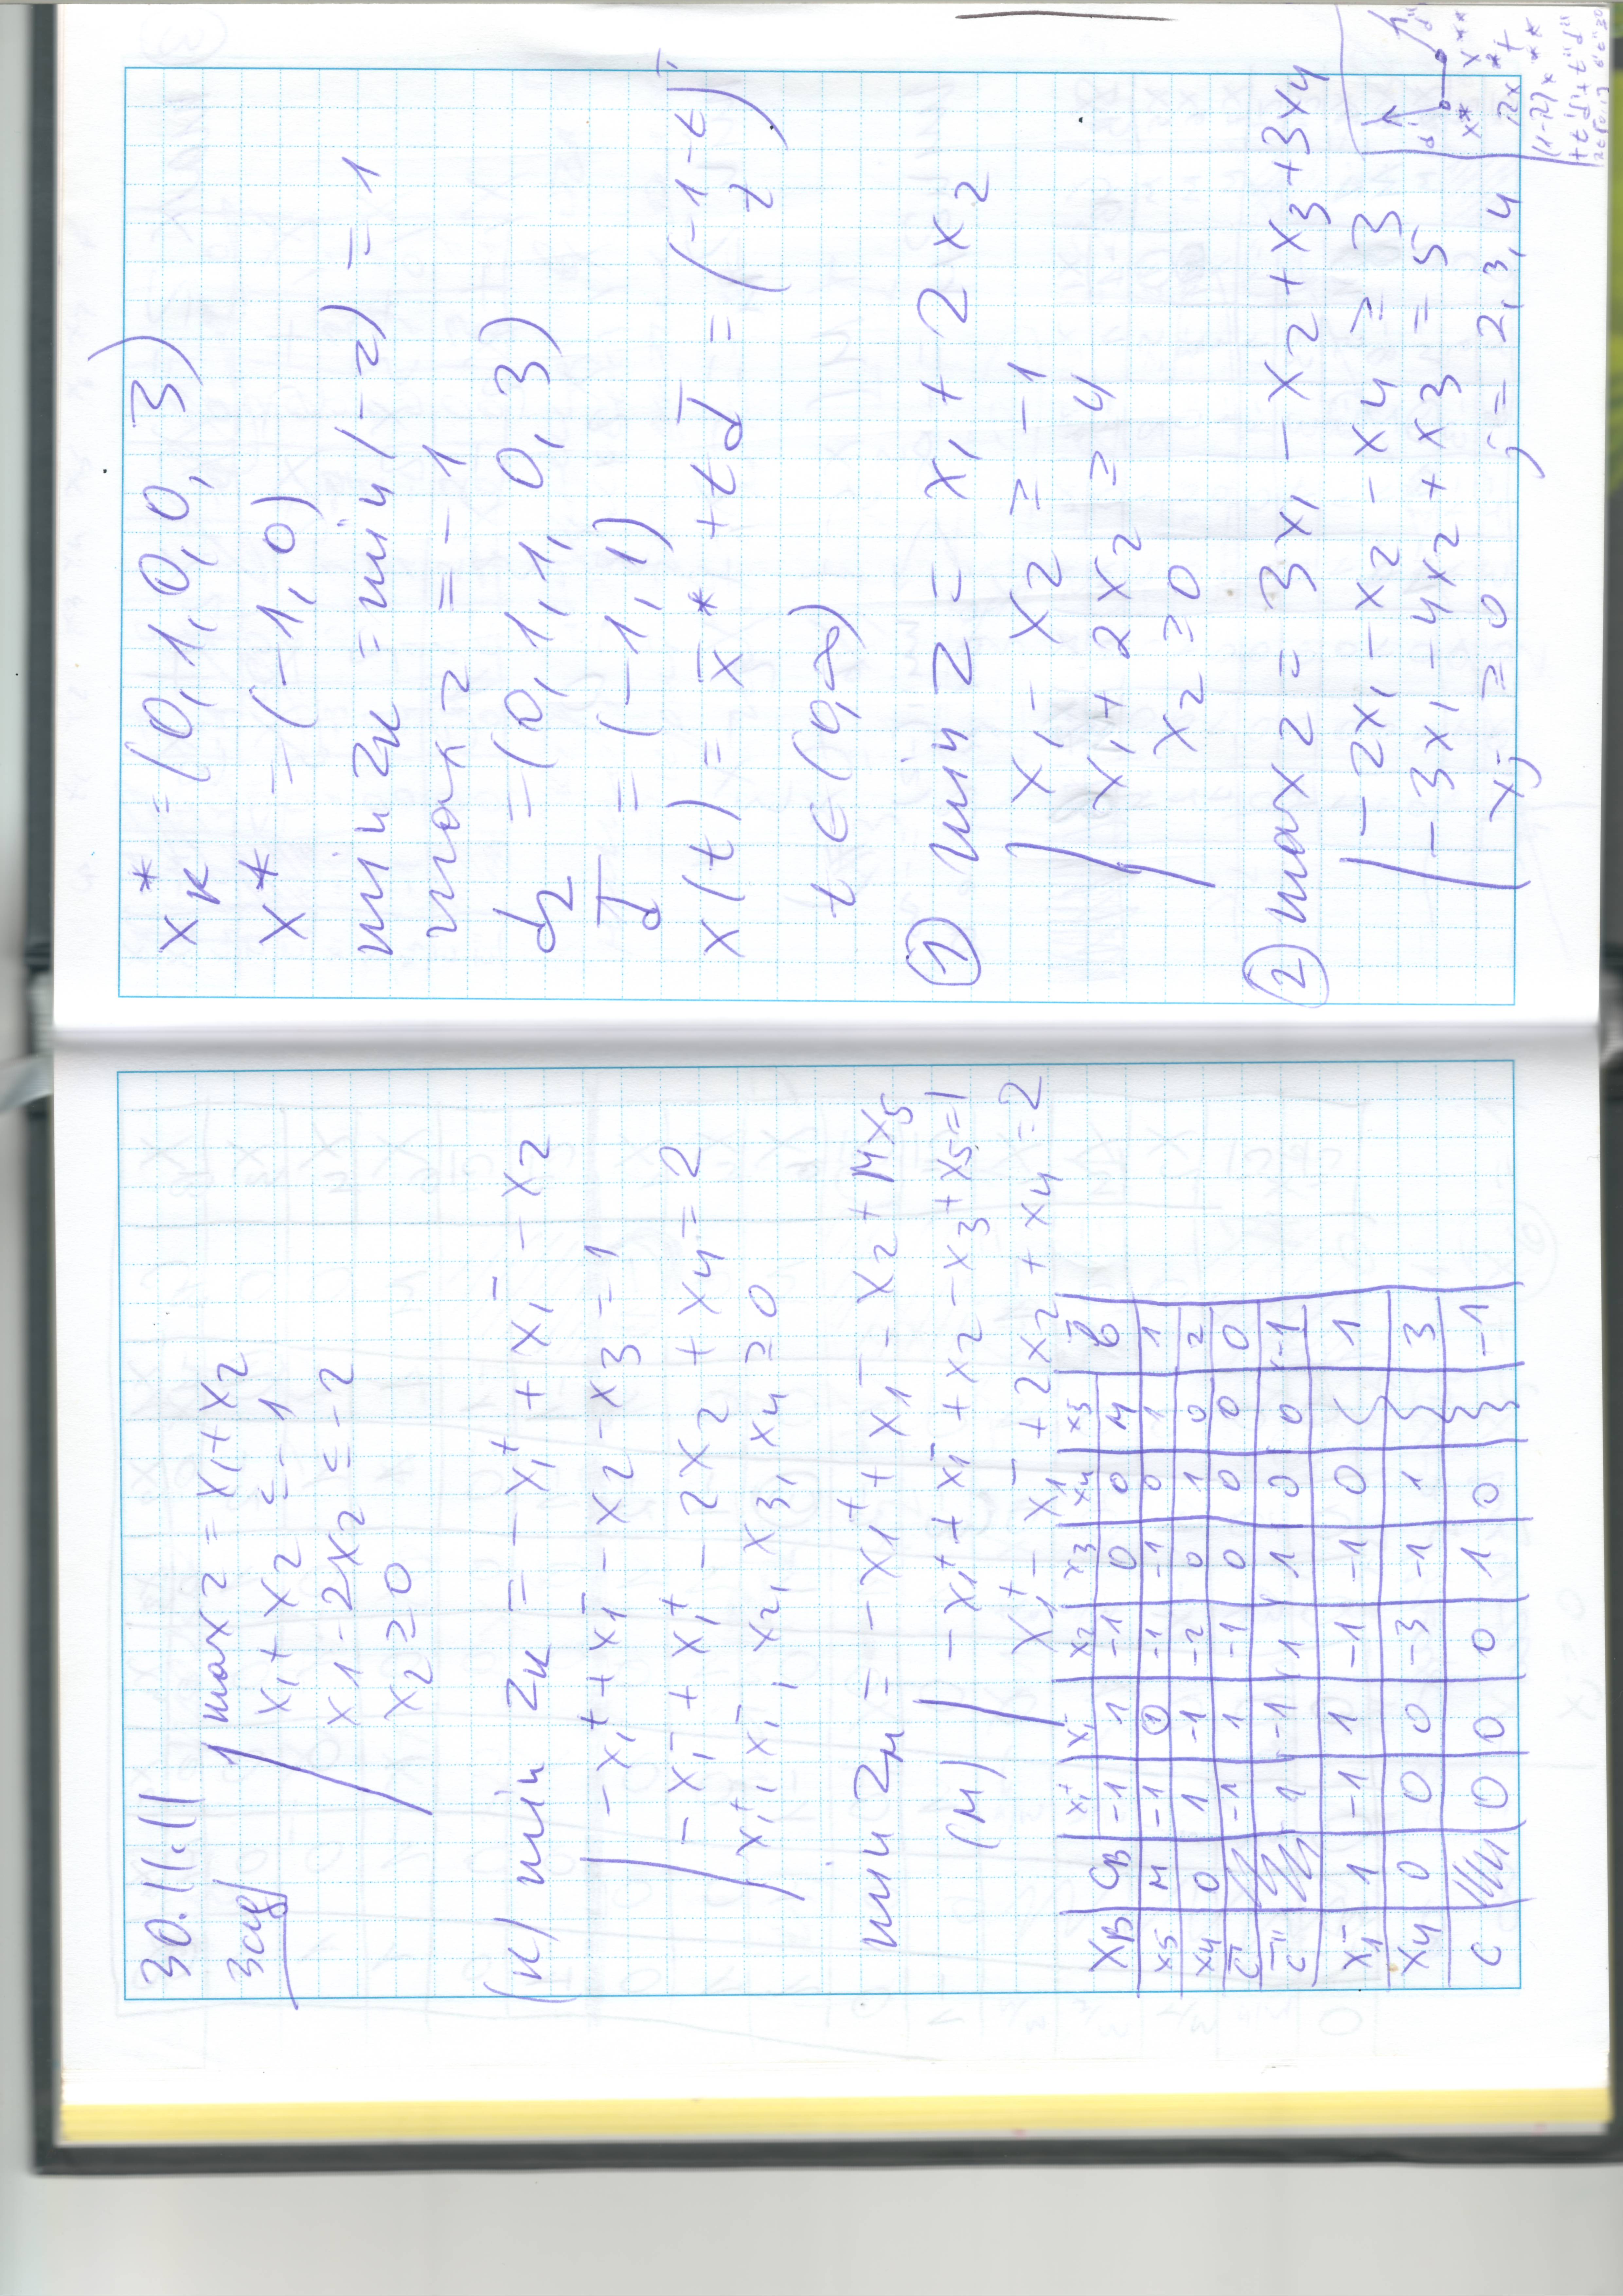 30.11.11
3 сед
max z = x₁ + x₂
x₁ + x₂ ≤ -1
x₁ - 2x₂ ≤ -2
x₂ ≥ 0
(к) min zₖ = -x₁⁺ + x₁⁻ - x₂
-x₁⁺ + x₁⁻ - x₂ - x₃ = 1
-x₁⁻ + x₁⁺ - 2x₂ + x₄ = 2
x₁⁺, x₁⁻, x₂, x₃, x₄ ≥ 0
min zₘ = -x₁⁺ + x₁⁻ - x₂ + Mx₅
(M) -x₁⁺ + x₁⁻ + x₂ - x₃ + x₅ = 1
x₁⁺ - x₁⁻ + 2x₂ + x₄ = 2
x₁⁺ x₁⁻ x₂ x₃ x₄ x₅
xB CB -1 1 -1 0 0 M b̄
x₅ M -1 1 -1 -1 0 1 1
x₄ 0 1 -1 -2 0 1 0 2
c̄' -1 1 -1 0 0 0 0
c̄'' 1 -1 1 1 0 0 -1
x₁⁻ 1 -1 1 -1 -1 0 1
x₄ 0 0 0 -3 -1 1 3
c 0 0 0 1 0 -1
xₖ* = (0, 1, 0, 0, 3)
x* = (-1, 0)
min zₖ = min (-z) = 1
max z = -1
d₂ = (0, 1, 1, 0, 3)
d̄ = (-1, 1)
x(t) = x̄* + t d̄ = (-1-t, t)
t ∈ (0, ∞)
① min z = x₁ + 2x₂
x₁ - x₂ ≥ -1
x₁ + 2x₂ ≥ 4
x₂ ≥ 0
② max z = 3x₁ - x₂ + x₃ + 3x₄
-2x₁ - x₂ - x₄ ≥ 3
-3x₁ - 4x₂ + x₃ = 5
xⱼ ≥ 0 j = 2, 3, 4
d' d''
x* x**